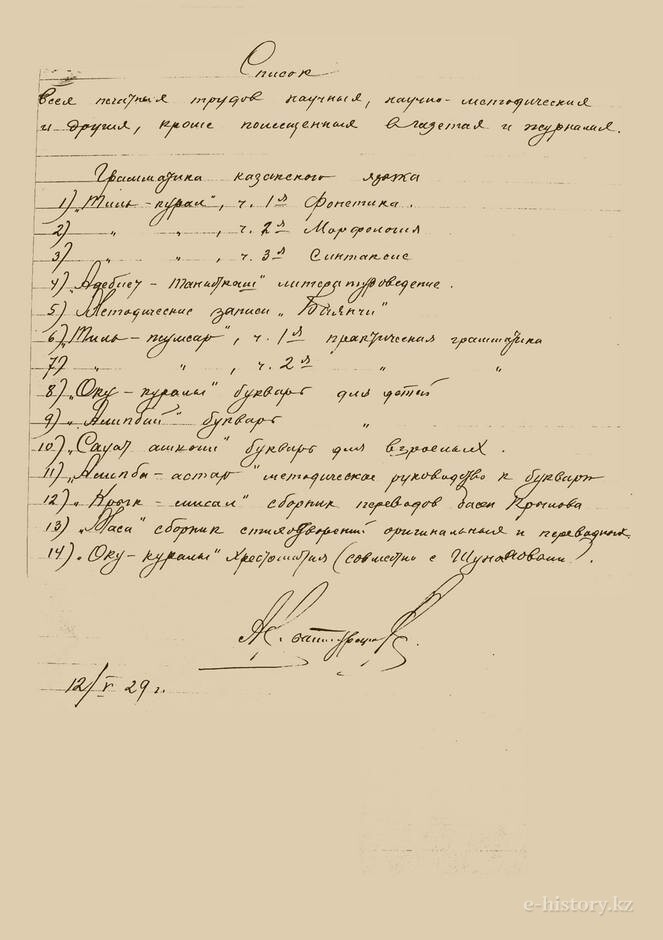 Список
всех печатных трудов научных, научно-методических
и других, кроме помещенных в газетах и журналах.
Грамматика казакского языка
1) „Тиль-курал", ч. 1я Фонетика.
2) „ „ , ч. 2я Морфология
3) „ „ , ч. 3я Синтаксис
4) „Адебиет-таниткыш" литературоведение.
5) Методические записи „Баянчи"
6) „Тиль-жумсар", ч. 1я практическая грамматика
7) „ „ , ч. 2я „ „
8) „Оку-куралы" букварь для детей
9) „Алипбий" букварь „
10) „Сауат ашкыш" букварь для взрослых.
11) „Алипби-астар" методическое руководство к букварю
12) „Кырык-мысал" сборник переводов басен Крылова
13) „Маса" сборник стихотворений оригинальных и переводных.
14) „Оку-куралы" хрестоматия (совместно с Шонановым).
12/V 29 г.
e-history.kz